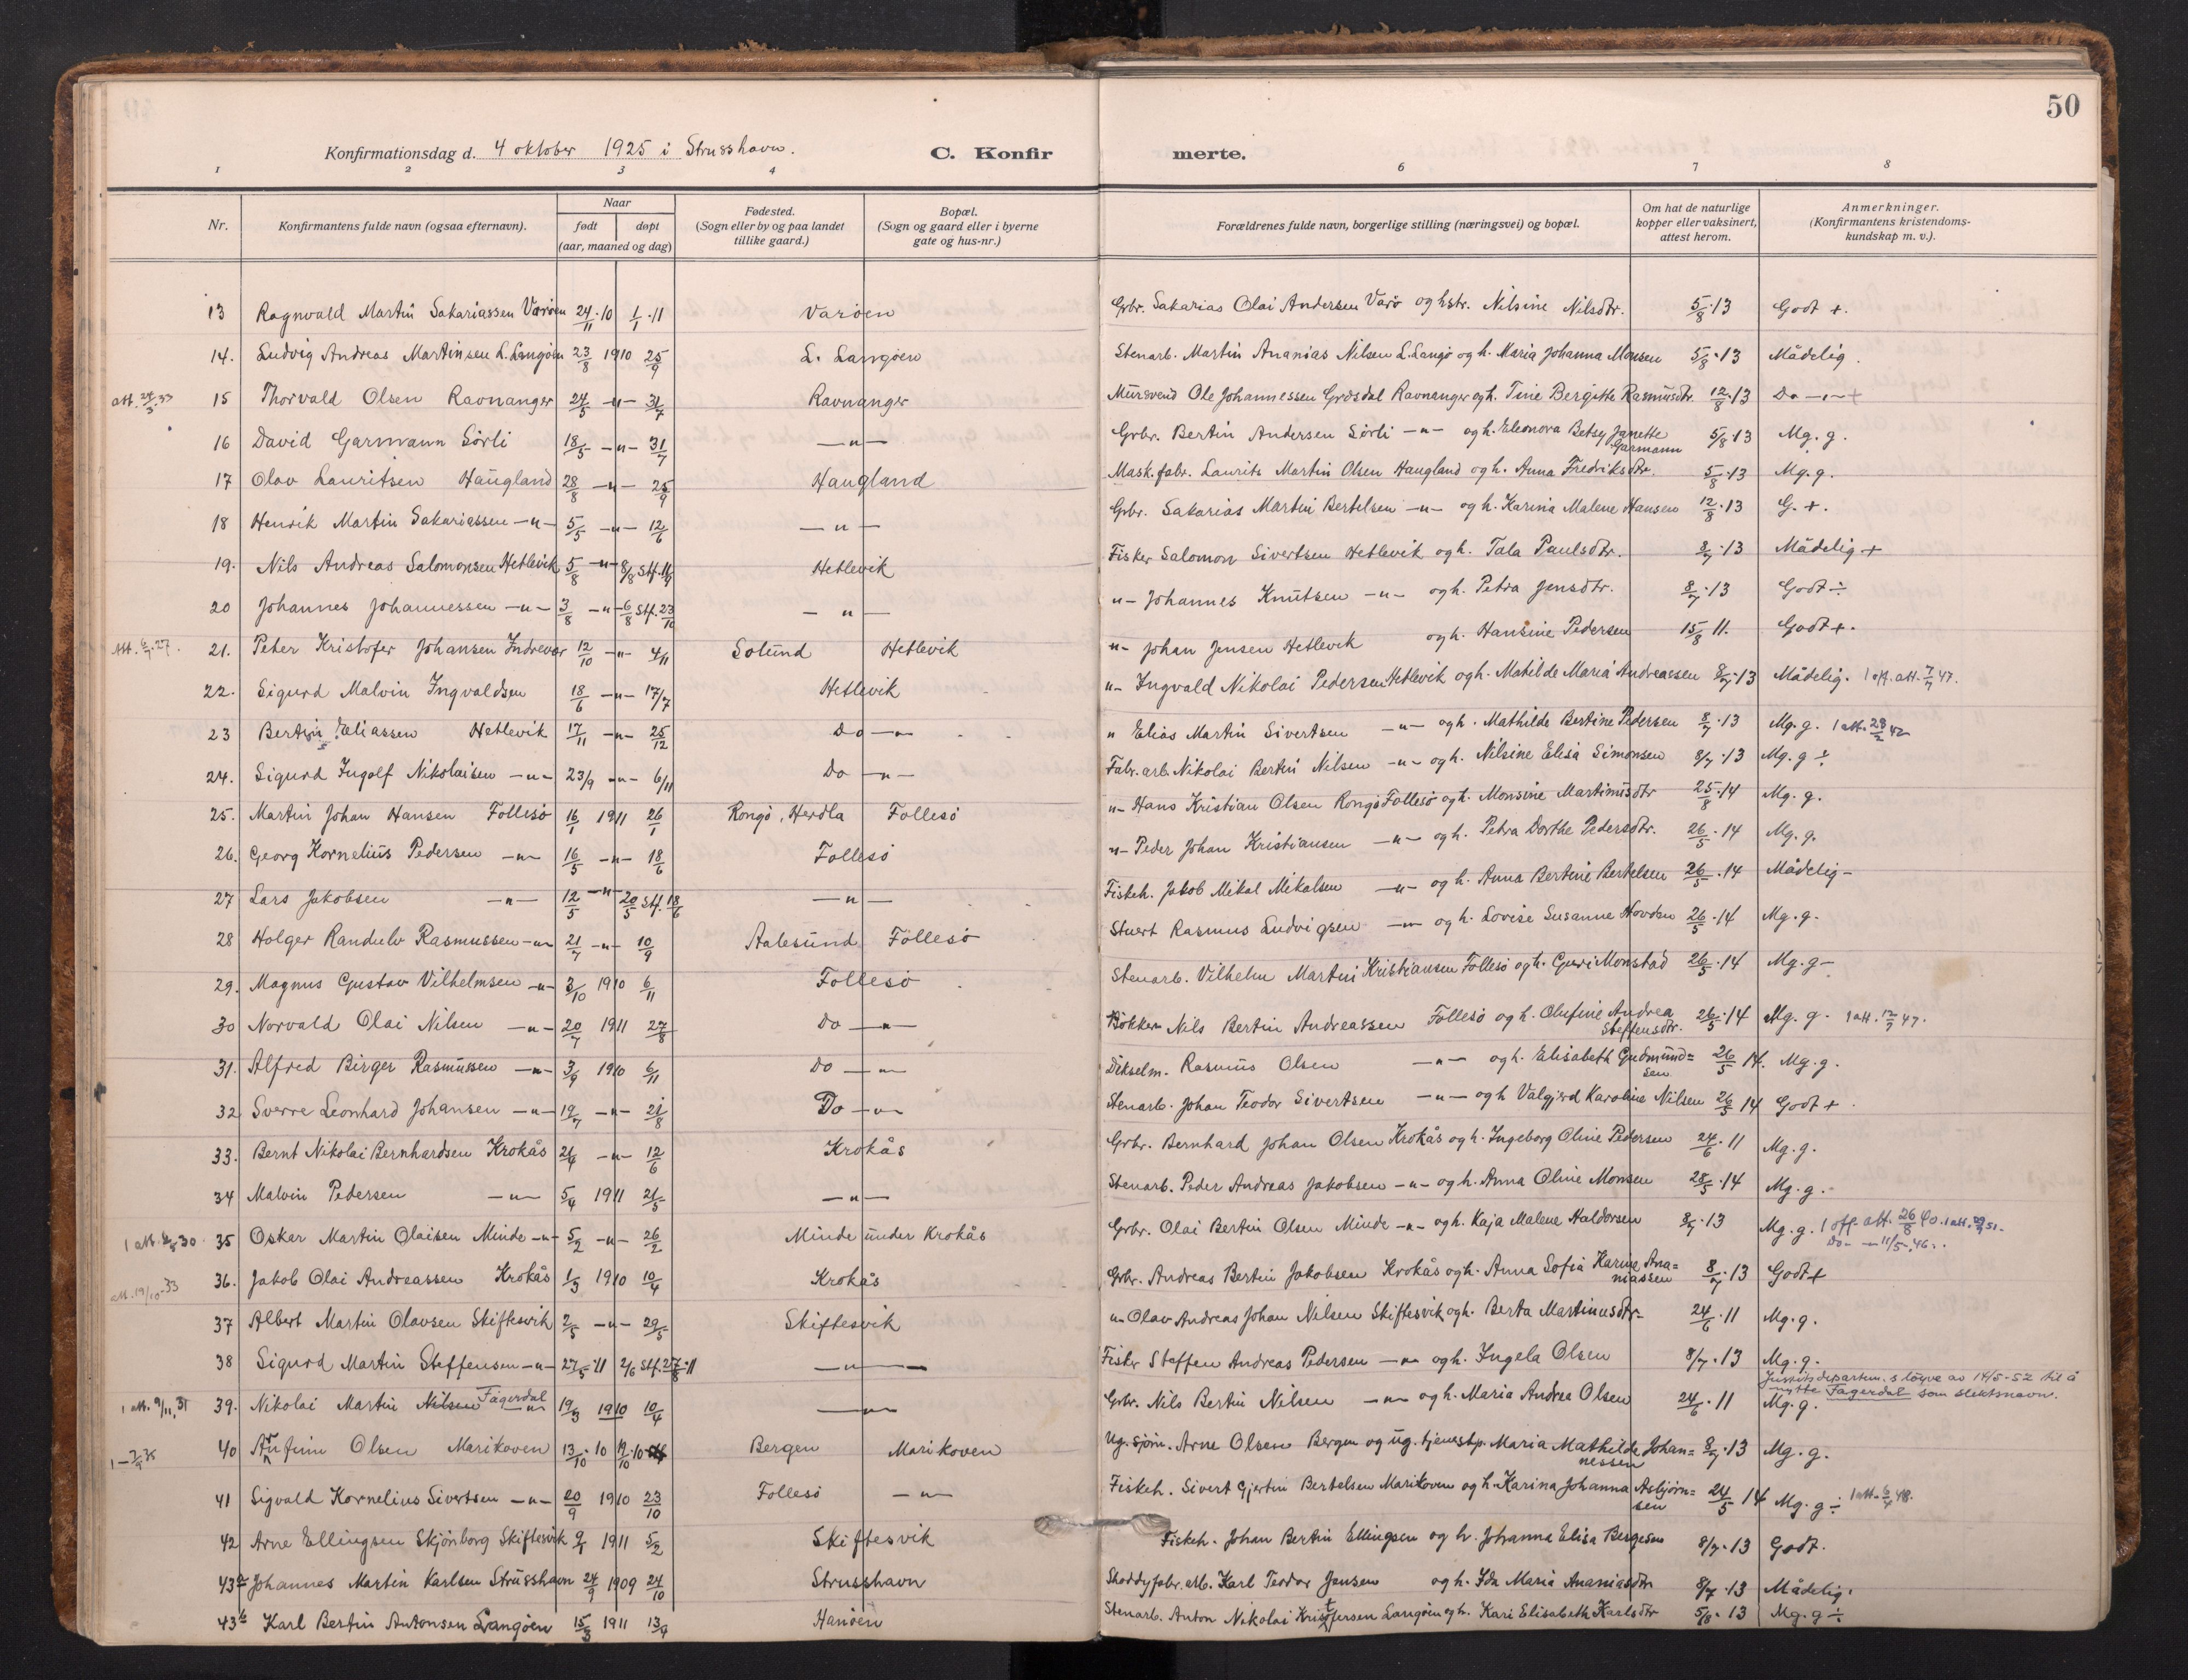 50
Konfirmationsdag d. 4 oktober 1925 i Strusshavn. C. Konfir merte.
1 2 3 4 6 7 8
Nr. Konfirmantens fulde navn (ogsaa efternavn). Naar født døpt (aar, maaned og dag) Fødested. (Sogn eller by og paa landet tillike gaard.) Bopæl. (Sogn og gaard eller i byerne gate og hus-nr.) Forældrenes fulde navn, borgerlige stilling (næringsvei) og bopæl. Om hat de naturlige kopper eller vaksinert, attest herom. Anmerkninger. (Konfirmantens kristendoms-kundskap m. v.).
13 Ragnvald Martin Sakariassen Varöen 24/11 10 1/1 11 Varöen Grbr. Sakarias Olai Andersen Varö og hstr. Nilsine Nilsdtr. 5/8 13 Godt +.
14. Ludvig Andreas Martinsen L. Langöen 23/8 1910 25/9 L. Langöen Stenarb. Martin Ananias Nilsen L. Langö og h. Maria Johanna Monsen 5/8 13 Mådelig.
att. 24/3 33 15 Thorvald Olsen Ravnanger 24/5 -"- 31/7 Ravnanger Mursvend Ole Johannessen Grösdal Ravnanger og h. Tine Bergitte Rasmusdtr. 12/8 13 Do -"- +
16 David Garmann Sörli 18/5 -"- 31/7 -"- Grbr. Bertin Andersen Sörli -"- og h. Eleonora Betsy Janette Garmann 5/8 13 Mg. g.
17 Olav Lauritsen Haugland 28/8 -"- 25/9 Haugland Mask. fabr. Laurits Martin Olsen Haugland og h. Anna Fredriksdtr. 5/8 13 Mg. g.
18 Henrik Martin Sakariassen -"- 5/5 -"- 12/6 -"- Grbr. Sakarias Martin Bertelsen -"- og h. Karina Malene Hansen 12/8 13 G. +.
19. Nils Andreas Salomonsen Hetlevik 5/8 -"- 8/8 Stf. 11/9 Hetlevik Fisker Salomon Sivertsen Hetlevik og h. Tala Paulsdtr. 8/7 13 Mådelig +
20 Johannes Johannessen -"- 3/8 -"- 6/8 Stf. 23/10 -"- "- Johannes Knutsen -"- og h. Petra Jensdtr. 8/7 13 Godt ÷
Att. 6/7 27. 21. Peter Kristofer Johansen Indrevær 12/10 -"- 4/11 Solund Hetlevik "- Johan Jensen Hetlevik og h. Hansine Pedersen 15/8 11. Godt +.
22. Sigurd Malvin Ingvaldsen 18/6 -"- 17/7 Hetlevik "- Ingvald Nikolai Pedersen Hetlevik og h. Matilde Maria Andreassen 8/7 13 Mådelig. 1 off. att. 7/7 47.
23 Bertin Eliassen Hetlevik 17/11 -"- 25/12 Do -"- " Elias Martin Sivertsen -"- og h. Mathilde Bertine Pedersen 8/7 13 Mg. g. 1 att. 28/2 42
24. Sigurd Ingolf Nikolaisen -"- 23/9 -"- 6/11 Do -"- Fabr. arb. Nikolai Bertin Nilsen -"- og h. Nilsine Elisa Simonsen 8/7 13 Mg. g ÷
25. Martin Johan Hansen Follesö 16/1 1911 26/1 Rongö, Herdla Follesö "- Hans Kristian Olsen Rongö Follesö og h. Monsine Martinusdtr 25/8 14 Mg. g.
26. Georg Kornelius Pedersen -"- 16/5 -"- 18/6 Follesö "- Peder Johan Kristiansen -"- og h. Petra Dorthe Pedersdtr. 26/5 14 Mg. g.
27 Lars Jakobsen -"- 12/5 -"- 20/5 Stf. 18/6 -"- Fiskeh. Jakob Mikal Mikalsen -"- og h. Anna Bertine Bertelsen 26/5 14 Mådelig -
28 Holger Randulv Rasmussen -"- 21/7 -"- 10/9 Aalesund Follesö Stuert Rasmus Ludvigsen -"- og h. Lovise Susanne Hovden 26/5 14 Mg. g.
29. Magnus Gustav Vilhelmsen -"- 3/10 1910 6/11 Follesö Stenarb. Vilhelm Martin Kristiansen Follesö og h. Guri Monstad 26/5 14 Mg. g -
30 Norvald Olai Nilsen -"- 20/7 1911 27/8 Do -"- Bökker Nils Bertin Andreassen Follesö og h. Olufine Andrea Steffensdtr. 26/5 14 Mg. g. 1 att. 12/9 47.
31. Alfred Birger Rasmussen -"- 3/9 1910 6/11 Do -"- Dikselm. Rasmus Olsen -"- og h. Elisabeth Gudmund=sen 26/5 14. Mg. g.
32 Sverre Leonhard Johansen -"- 19/7 -"- 21/8 Do -"- Stenarb. Johan Teodor Sivertsen -"- og h Valgjerd Karoline Nilsen 26/5 14 Godt +
33. Bernt Nikolai Bernhardsen Krokås 21/4 -"- 12/6 Krokås Grbr. Bernhard Johan Olsen Krokås og h. Ingeborg Oline Pedersen 24/6 11 Mg. g.
34 Malvin Pedersen -"- 5/4 1911 21/5 -"- Stenarb. Peder Andreas Jakobsen -"- og h. Anna Oline Monsen 28/5 14 Mg. g.
1 att. 30 35 Oskar Martin Olaisen Minde -"- 5/2 -"- 26/2 Minde under Krokås Grbr. Olai Bertin Olsen Minde -"- og h. Kaja Malene Haldorsen 8/7 13 Mg. g. 1 off. att. 26/8 40. 1 att. 51.
Do - - 11/5. 46.
att. 19/10-33 36. Jakob Olai Andreassen Krokås 1/3 1910 10/4 Krokås Grbr. Andreas Bertin Jakobsen Krokås og h. Anna Sofia Karine Ana=niassen 8/7 13 Godt +
37 Albert Martin Olavsen Skiftesvik 2/5 -"- 29/5 Skiftesvik "- Olav Andreas Johan Nilsen Skiftesvik og h. Berta Martinusdtr. 24/6 11 Mg. g.
38 Sigurd Martin Steffensen -"- 27/5 11 2/6 Stf. 27/8 11 -"- Fisker Steffen Andreas Pedersen -"- og h. Ingela Olsen 8/7 13 Mg. g.
Justisdepartem. s löyve av 14/5-52 til å nytte Fagerdal som slektsnavn.
1 att. 9/11, 31 39. Nikolai Martin Nilsen Fagerdal -"- 19/3 1910 10/4 -"- Grbr. Nils Bertin Nilsen -"- og h. Maria Andrea Olsen 24/6 11 Mg. g.
40 Arnfinn Olsen Marikoven 13/10 10 19/10 10 Bergen Marikoven Ug. sjöm. Arne Olsen Bergen og ug. tjenestp. Maria Mathilde Johan=nessen 8/7 13 Mg. g.
41 Sigvald Kornelius Sivertsen -"- 20/9 1910 23/10 Follesö -"- Fiskeh. Sivert Gjertin Bertelsen Marikoven og h. Karina Johanna Asbjörn=sen 24/5 14 Mg. g ÷ 1 att. 6/7 48.
42 Arne Ellingsen Skjönborg Skiftesvik 9/1 1911 5/2 Skiftesvik Fiskeh. Johan Bertin Ellingsen og h. Johanna Elisa Bergesen 8/7 13 Godt.
43a Johannes Martin Karlsen Strusshavn 24/9 1909 24/10 Strusshavn Shoddyfabr. arb. Karl Teodor Jensen og h. Ida Maria Ananiasdtr 8/7 13 Mådelig.
43b Karl Bertin Antonsen Langöen 15/3 1911 13/9 Hanöen Stenarb. Anton Nikolai Kristfersen Langöen og h. Kari Elisabeth Karlsdtr 5/8 13 Mg. g ÷